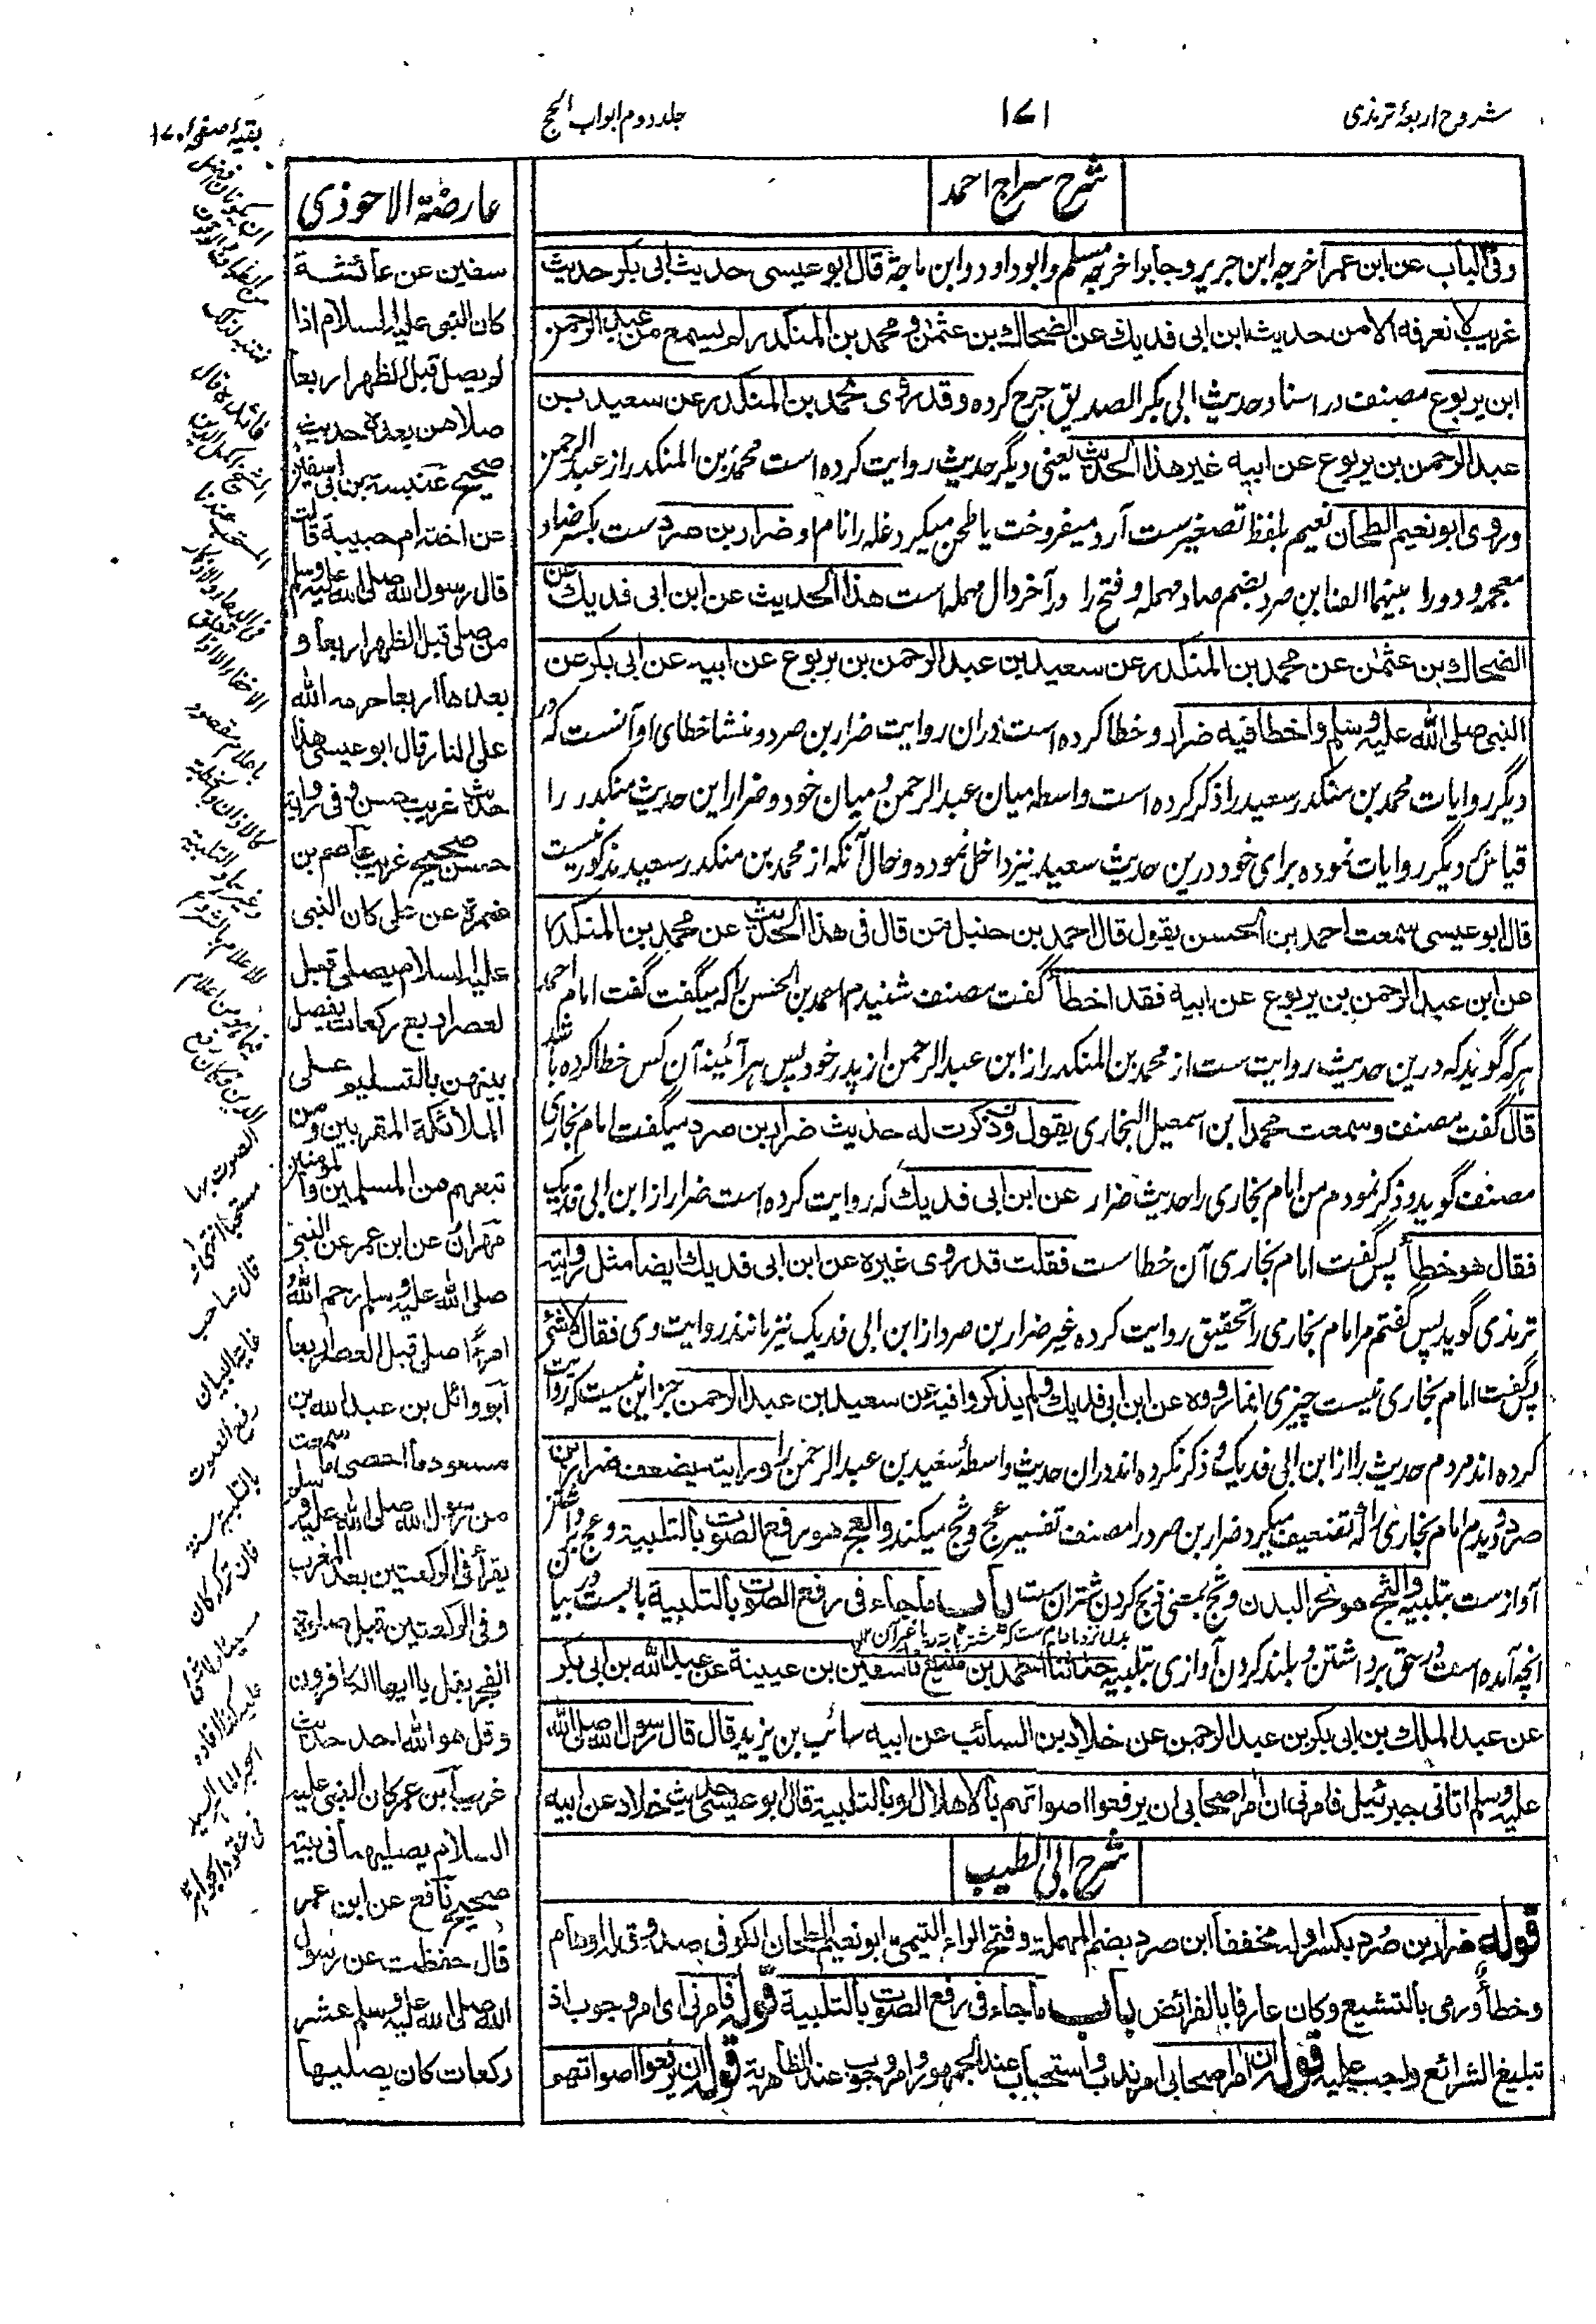 شروح اربعۂ ترمذی
١٧١
جلد دوم ابواب الحج
بقیۂ صفحۂ ١٧٠
شرح سراج احمد
وفی الباب عن ابن عمر اخرجه ابن جریر وجابر اخرجه مسلم وابوداود وابن ماجة قال ابو عیسی حدیث ابی بکر حدیث
غریب لا نعرفه الا من حدیث ابن ابی فدیك عن الضحاك بن عثمٰن ومحمد بن المنکدر لم یسمع من عبد الرحمن
ابن یربوع مصنف در اسناد حدیث ابی بکر الصدیق جرح کرده وقد روی محمد بن المنکدر عن سعید بن
عبد الرحمن بن یربوع عن ابیه غیر هذا الحدیث یعنی دیگر حدیث روایت کرده است محمد بن المنکدر از عبد الرحمن
وروی ابو نعیم الطحان نعیم بلفظ تصغیرست آرد میفروخت یا طحن میکرد غله را نام او ضرار بن صردست بکسر ضاد
معجمه ودورا بینهما الف ابن صرد بضم صاد مهمله وفتح را ودر آخر دال مهمله است هذا الحدیث عن ابن ابی فدیك عن
الضحاك بن عثمٰن عن محمد بن المنکدر عن سعید بن عبد الرحمن بن یربوع عن ابیه عن ابی بکر عن
النبی صلی الله علیه وسلم واخطأ فیه ضرار وخطا کرده است دران روایت ضرار بن صرد ومنشا خطای او آنست که در
دیگر روایات محمد بن منکدر سعید را ذکر کرده است واسطه میان عبد الرحمن ومیان خود وضرار این حدیث منکدر را
قیاس دیگر روایات نموده برای خود درین حدیث سعید نیز داخل نموده وحال آنکه از محمد بن منکدر سعید مذکور نیست
قال ابو عیسی سمعت احمد بن الحسن یقول قال احمد بن حنبل من قال فی هذا الحدیث عن محمد بن المنکدر
عن ابن عبد الرحمن بن یربوع عن ابیه فقد اخطأ گفت مصنف شنیدم احمد بن الحسن را که میگفت گفت امام احمد
هر که گوید که درین حدیث روایت ست از محمد بن المنکدر از ابن عبد الرحمن از پدر خود پس هر آئینه آن کس خطا کرده باشد
قال گفت مصنف وسمعت محمد ابن اسمعیل البخاری یقول وذکرت له حدیث ضرار بن صرد میگفت امام بخاری
مصنف گوید وذکر نمودم من امام بخاری را حدیث ضرار عن ابن ابی فدیك که روایت کرده است ضرار از ابن ابی فدیک
فقال هو خطأ پس گفت امام بخاری آن خطا ست فقلت قد روی غیره عن ابن ابی فدیك ایضا مثل روایته
ترمذی گوید پس گفتم مر امام بخاری را تحقیق روایت کرده غیر ضرار بن صرد از ابن ابی فدیک نیز مانند روایت وی فقال لا شئ
پس گفت امام بخاری نیست چیزی انما رووه عن ابن ابی فدیك ولم یذکروا فیه عن سعید بن عبد الرحمن جز این نیست که روایت
کرده اند مردم حدیث را از ابن ابی فدیک وذکر نکرده اند دران حدیث واسطۂ سعید بن عبد الرحمن را ورایته یضعف ضرار بن
صرد ودیدم امام بخاری را که تضعیف میکرد ضرار بن صرد را مصنف تفسیر عج وثج میکند والعج هو رفع الصوت بالتلبیة وعج برداشتن
آوازست بتلبیه والثج هو نحر البدن وثج بمعنی ذبح کردن شتران ست باب ما جاء فی رفع الصوت بالتلبیة بابست در بیان
انچه آمده است در حق برداشتن وبلند کردن آوازی بتلبیه حدثنا احمد بن منیع نا سفین بن عیینة عن عبد الله بن ابی بکر
عن عبد الملك بن ابی بکر بن عبد الرحمن عن خلاد بن السائب عن ابیه سائب بن یزید قال قال رسول الله صلی الله
علیه وسلم اتانی جبرئیل فامرنی ان آمر اصحابی ان یرفعوا اصواتهم بالاهلال او بالتلبیة قال ابو عیسی حدیث خلاد عن ابیه
شرح ابی الطیب
قوله ضرار بن صرد بکسر اوله مخففا ابن صرد بضم المهملة وفتح الراء التیمی ابو نعیم الطحان الکوفی صدوق له اوهام
وخطأ ورمی بالتشیع وکان عارفا بالفرائض باب ما جاء فی رفع الصوت بالتلبیة قوله فامرنی ای امر وجوب اذ
تبلیغ الشرائع واجب علیه قوله ان آمر اصحابی امر ندب واستحباب عند الجمهور وامر وجوب عند الظاهریة قوله ان یرفعوا اصواتهم
عارضة الاحوذی
سفین عن عائشة
کان النبی علیه السلام اذا
لم یصل قبل الظهر اربعا
صلاهن بعدها حدیث
صحیح عنبسة بن ابی سفین
عن اخته ام حبیبة قالت
قال رسول الله صلی الله علیه وسلم
من صلی قبل الظهر اربعا و
بعدها اربعا حرمه الله
علی النار قال ابو عیسی هذا
حدیث غریب حسن وفی روایة
حسن صحیح غریب عاصم بن
ضمرة عن علی کان النبی
علیه السلام یصلی قبل
العصر اربع رکعات یفصل
بینهن بالتسلیم علی
الملائکة المقربین ومن
تبعهم من المسلمین والمؤمنین
مهران عن ابن عمر عن النبی
صلی الله علیه وسلم رحم الله
امرءا صلی قبل العصر اربعا
ابو وائل بن عبد الله بن
مسعود ما احصی ما سمعت
من رسول الله صلی الله علیه وسلم
یقرأ فی الرکعتین بعد المغرب
وفی الرکعتین قبل صلوة
الفجر بقل یا ایها الکافرون
وقل هو الله احد حدیث
غریب ابن عمر کان النبی علیه
السلام یصلیهما فی بیته
صحیح نافع عن ابن عمر
قال حفظت عن رسول
الله صلی الله علیه وسلم عشر
رکعات کان یصلیها
المستحب عندنا
فی الدعاء والاذکار
الاخفاء الا اذا تعلق
باعلام مقصود
کالاذان والخطبة
وغیرها والتلبیة
للاعلام بالشروع
فیما هو من اعلام
الدین فکان رفع
الصوت بها
مستحبا انتهی
قال صاحب
غایة البیان
رفع الصوت
بالتلبیة سنة
فان ترکه کان
مسیئا ولا شئ
علیه